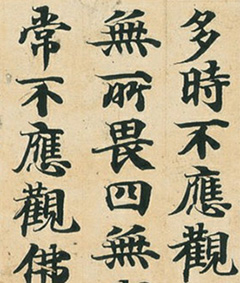 多時不應觀
無所畏四無
常不應觀佛